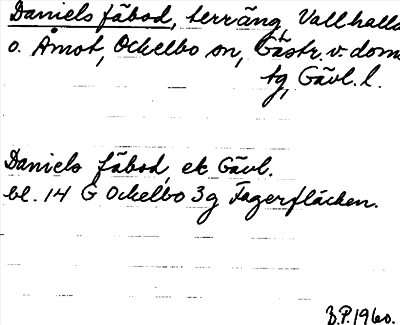 Daniels fäbod, terräng Vallhalla
o. Åmot, Ockelbo sn, Gästr. v. doms.
tg, Gävl. l.
Daniels fäbod, ek Gävl.
bl. 14 G Ockelbo 3g Fagerfläcken.
B.P. 1960.